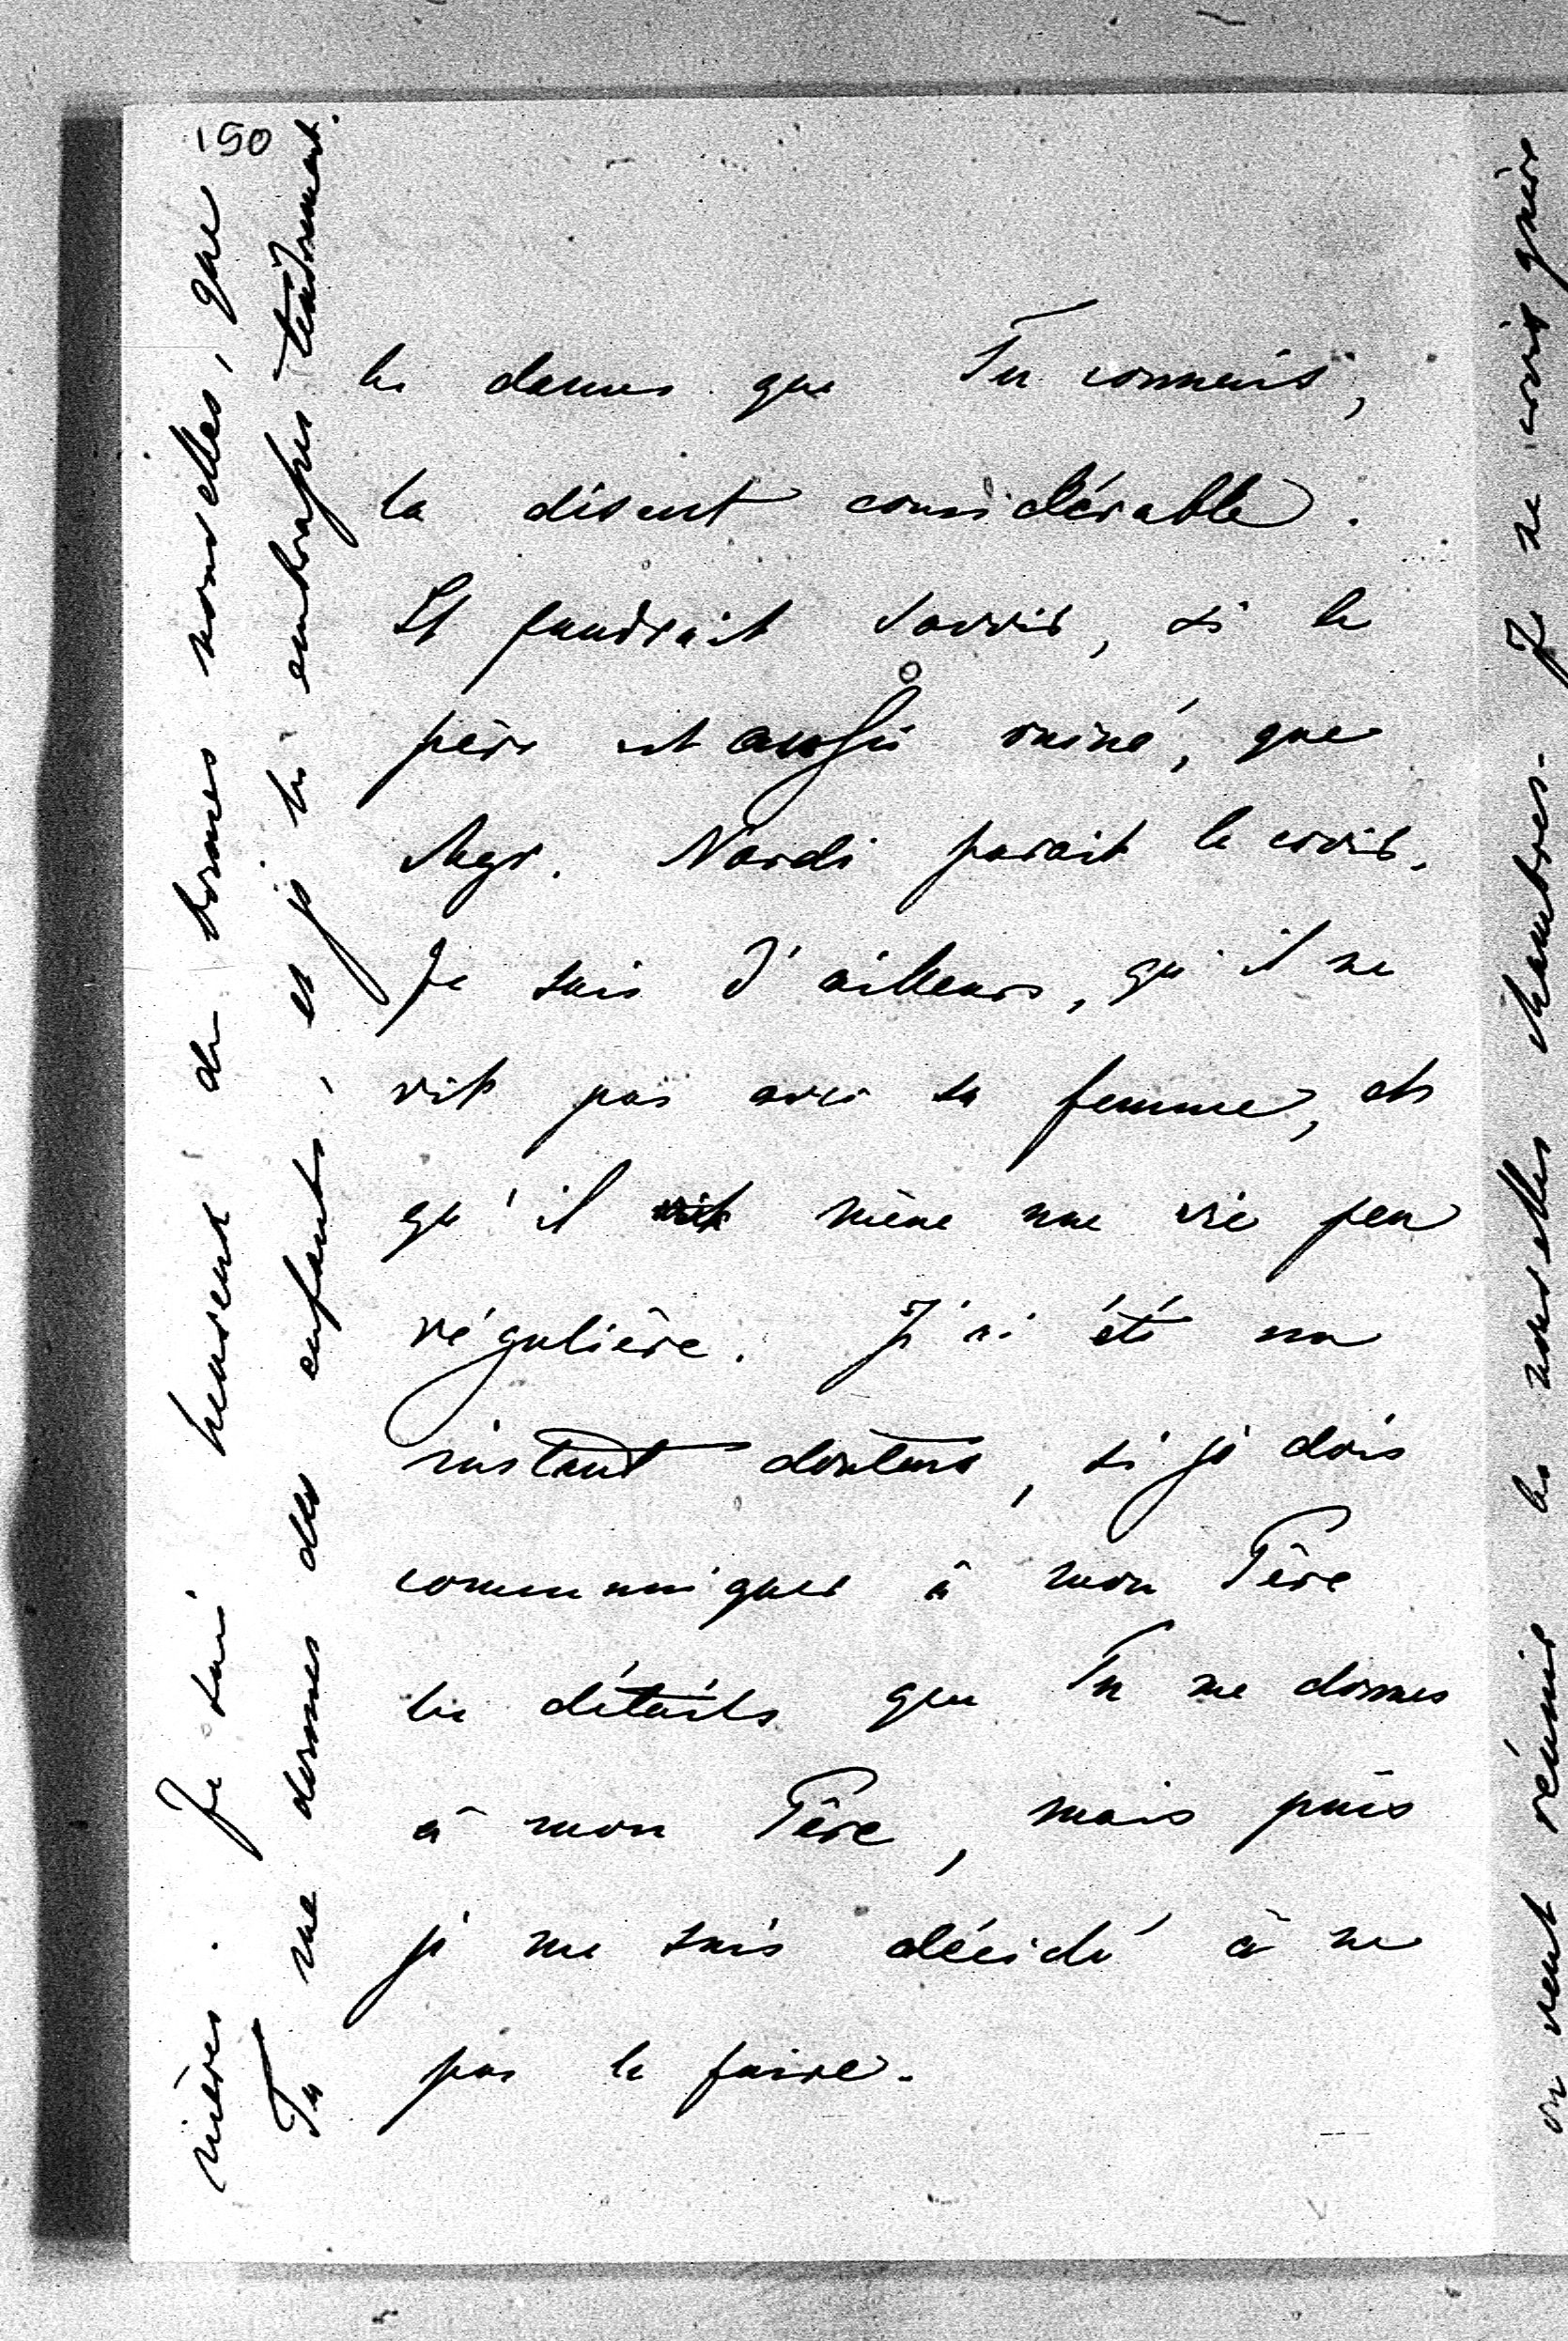 150
les dames que Tu connais,
la disent considérable.
Il faudrait savoir, si le
père est aussi ruiné, que
Mgr. Nardi parait le croire.
Je sais d'ailleurs, qu'il ne
vit pas avec sa femme, et
qu'il vit mène une vie peu
régulière. J'ai été un
instant douteux, si je dois
communiquer à mon Père
les détails que Tu me donnes
à mon Père, mais puis
je me suis décidé à ne
pas le faire.
nières. Je suis heureux de bonnes nouvelles, que
Tu me donnes des enfants, et je les embrasse tendrement.
on veut réunir les nouvelles chambres. Je ne crois guère